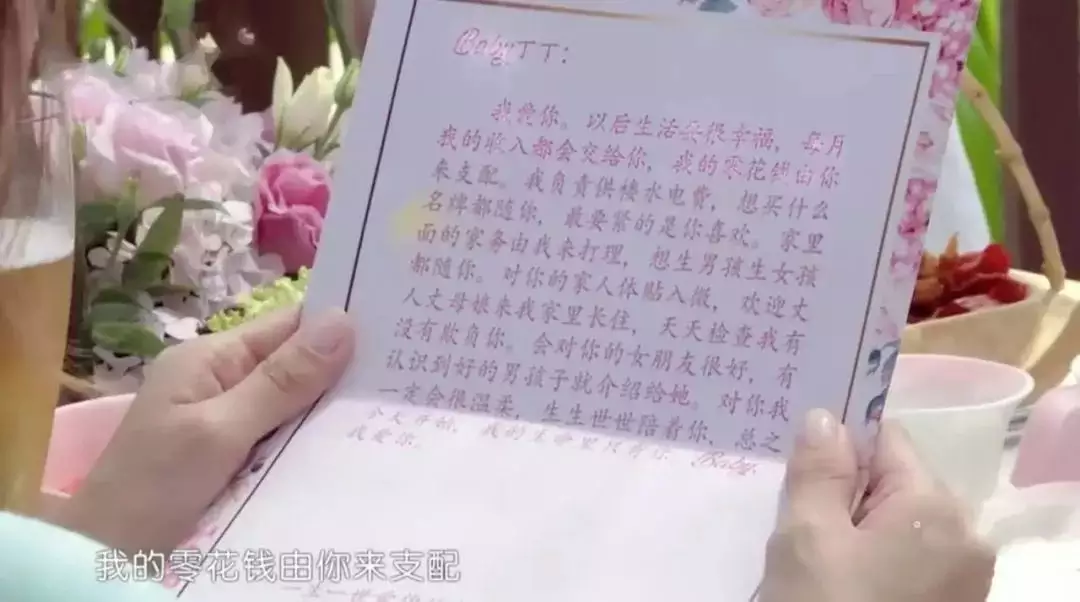 Baby丁丁：
我爱你。以后生活要很幸福，每月
我的收入都会交给你，我的零花钱由你
来支配。我负责供楼水电费，想买什么
名牌都随你，最要紧的是你喜欢。家里
面的家务由我来打理，想生男孩生女孩
都随你。对你的家人体贴入微，欢迎丈
人丈母娘来我家里长住，天天检查我有
没有欺负你。会对你的女朋友很好，有
认识到好的男孩子就介绍给她。对你我
一定会很温柔，生生世世陪着你，总之
今天开始，我的生命里只有你，Baby，
我爱你。
我的零花钱由你来支配